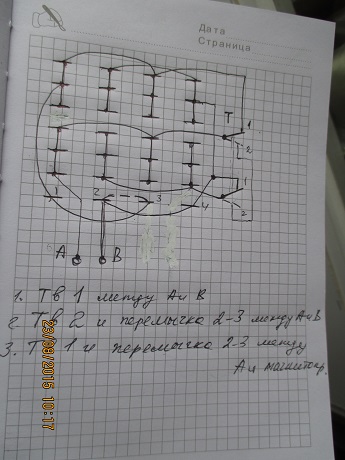 Дата
Страница
Т
1
2
1
2
1
2
3
4
А
В
1. Тв 1 между А и В
2. Тв 2 и перемычка 2-3 между А и В
3. Тв 1 и перемычка 2-3 между
А и магнитопр.
23/08/2015 10:17